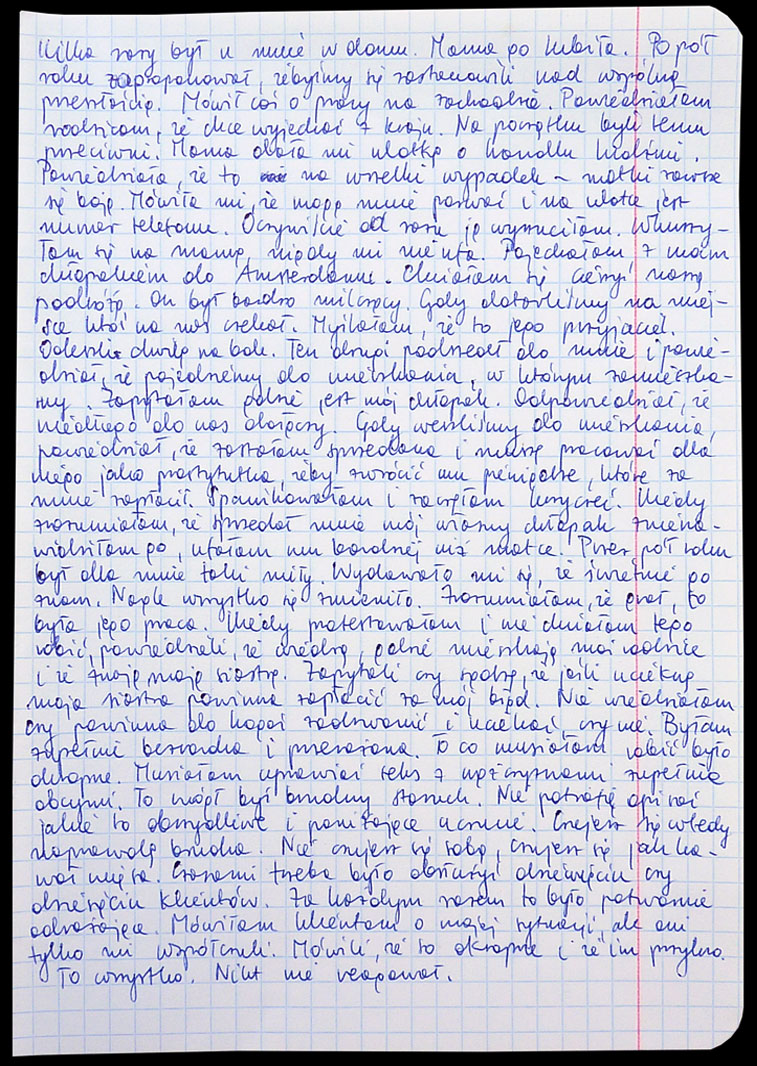 Kilka razy był u mnie w domu. Mama go lubiła. Po pół
roku zaproponował, żebyśmy się zastanowili nad wspólną
przeszłością. Mówił coś o pracy na zachodzie. Powiedziałam
rodzicom, że chcę wyjechać z kraju. Na początku byli temu
przeciwni. Mama dała mi ulotkę o handlu ludźmi.
Powiedziała, że to na wszelki wypadek – matki zawsze
się boją. Mówiła mi, że mogę mnie porwać i na ulotce jest
numer telefonu. Oczywiście od razu ją wyrzuciłam. Wkurzy-
łam się na mamę, nigdy mi nie ufa. Pojechałam z moim
chłopakiem do Amsterdamu. Chciałam się cieszyć naszą
podróżą. On był bardzo milczący. Gdy dotarliśmy na miej-
sce ktoś na nas czekał. Myślałam, że to jego przyjaciel.
Odeszli chwilę na bok. Ten drugi podszedł do mnie i powie-
dział, że pojedziemy do mieszkania, w którym zamieszka-
my. Zapytałam gdzie jest mój chłopak. Odpowiedział, że
niedługo do nas dołączy. Gdy weszliśmy do mieszkania,
powiedział, że zostałam sprzedana i muszę pracować dla
niego jako prostytutka, żeby zwrócić mu pieniądze, które za
mnie zapłacił. Spanikowałam i zaczęłam krzyczeć. Kiedy
zrozumiałam, że sprzedał mnie mój własny chłopak znena-
widziłam go, ufałam mu bardziej niż matce. Przez pół roku
był dla mnie taki miły. Wydawało mi się, że świetnie go
znam. Nagle wszystko się zmieniło. Zrozumiałam, że grał, to
była jego praca. Kiedy protestowałam i nie chciałam tego
robić, powiedzieli, że wiedzą, gdzie mieszkają moi rodzice
i że znają moją siostrę. Zapytali czy sądzę, że jeśli ucieknę
moja siostra powinna zapłacić za mój błąd. Nie wiedziałam
czy powinna do kogoś zadzwonić i uciekać, czy nie. Byłam
zupełnie bezradna i przerażona. To co musiałam robić było
okropne. Musiałam uprawiać seks z mężczyznami zupełnie
obcymi. To mógł być brudny staruch. Nie potrafię opisać
jakie to obrzydliwe i poniżające uczucie. Czujesz się wtedy
naprawdę brudna. Nie czujesz się sobą, czujesz się jak ka-
wał mięsa. Czasami trzeba było obsłużyć dziewięciu czy
dziesięciu klientów. Za każdym razem to było potwornie
odrażające. Mówiłam klientom o mojej sytuacji, ale oni
tylko mi współczuli. Mówili, że to okropne i że im przykro.
To wszystko. Nikt nie reagował.